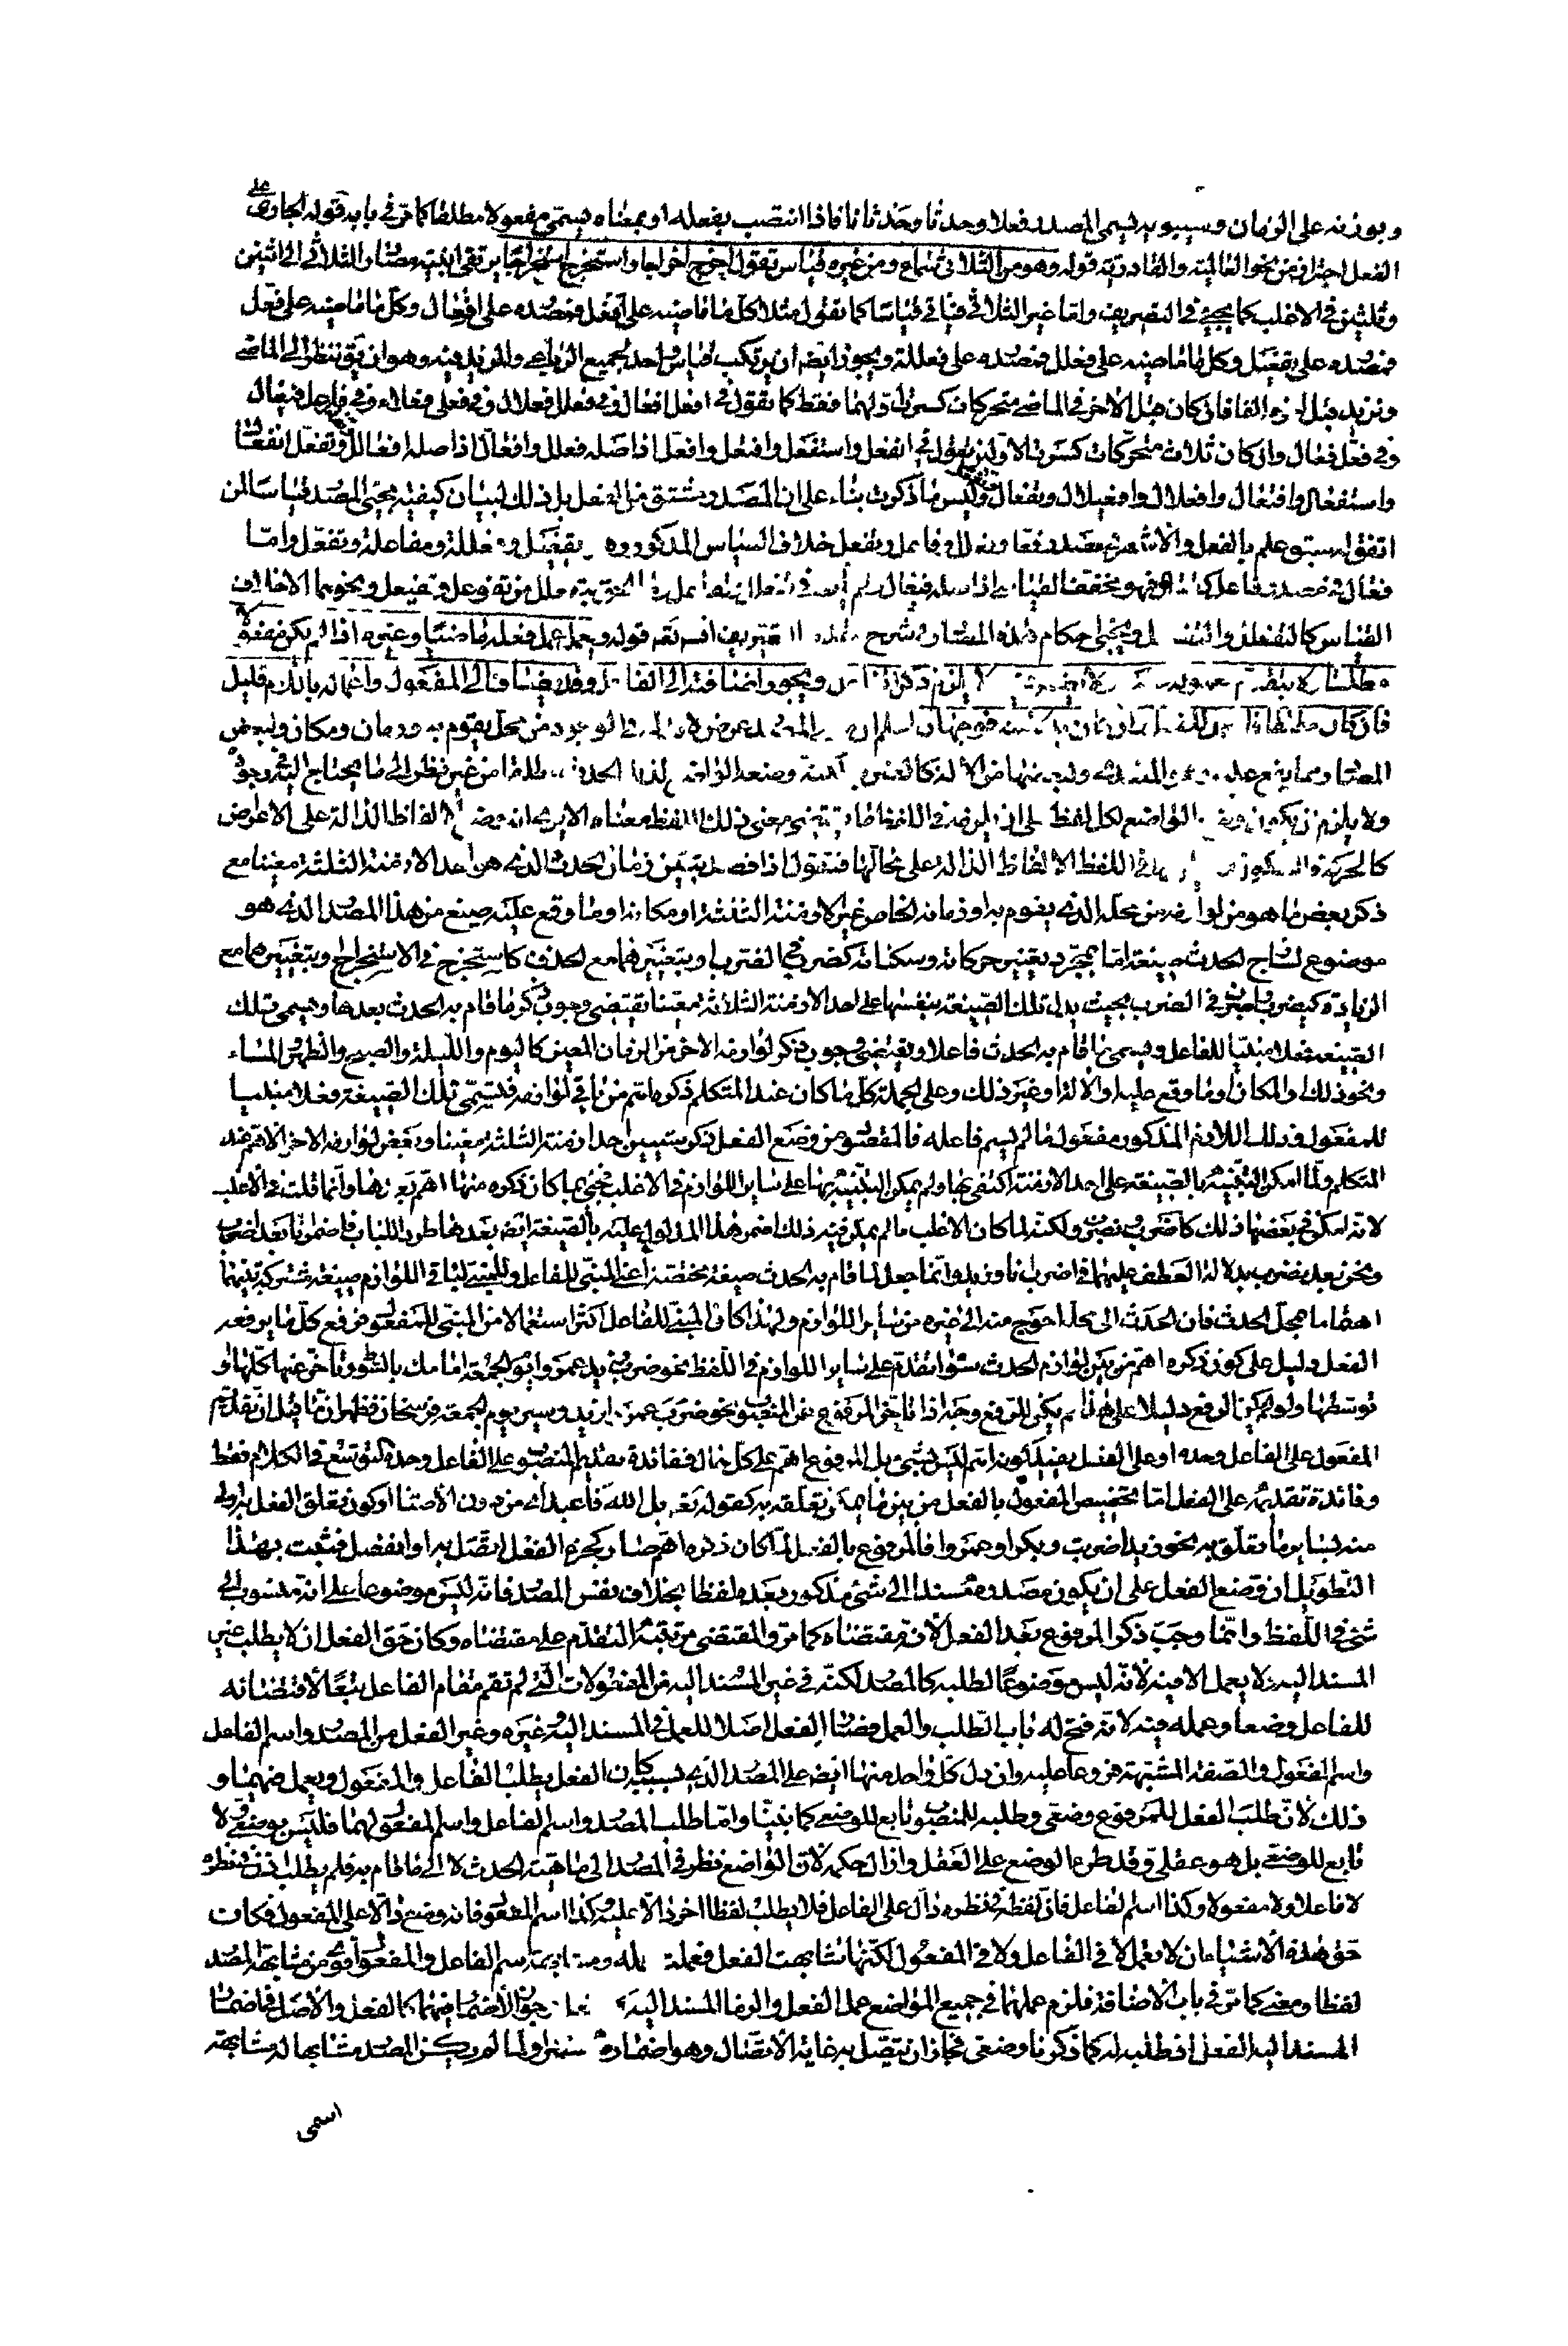 وبوزنه على الزمان وسيبويه يسمى المصدر فعلا وحدثا وحدثانا فاذا انتصب بفعله او بمعناه يسمى مفعولا مطلقا كما مر في بابه قوله الجارى على
الفعل احتراز من نحو العالمية والقادرية قوله وهو من الثلاثى سماع ومن غيره قياس تقول اخرج اخراجا واستخرج استخراجا يرتقى ابنية مصادر الثلاثى الى اثنين
وثلثين في الاغلب كما يجيئ في التصريف واما غير الثلاثى فياتى قياسا كما تقول مثلا كل ما ماضيه على افعل فمصدره على افعال وكل ما ماضيه على فعل
فمصدره على تفعيل وكل ما ماضيه على فعلل فمصدره على فعللة ويجوز ايضا ان يرتكب قياس واحد لجميع الرباعى والمزيد فيه وهو ان يقق ننظر الى الماضى
ونزيد قبل اخره الفا فان كان قبل الاخر في الماضى متحركان كسرت اولهما فقط كما تقول في افعل افعال وفي فعلل فعلال وفي فعلى فعلاء وفي فاعل فيعال
وفي فعل فعال وان كان ثلاث متحركات كسرت الاولين كما في انفعل واستفعل وافتعل وافعل اذ اصله افعلل وافعال اذ اصله افعالل وتفعل انفعال
واستفعال وافتعال وافعلال وافعيلال وتفعال وليس ما ذكرت بناء على ان المصدر مشتق من الفعل بل ذلك لبيان كيفية مجيئ المصدر قياسا لمن
اتفق له سبق علم بالفعل والاشهر في مصدر فعل وفعلل وفاعل وتفعل خلاف القياس المذكور وهو تفعيل وفعللة ومفاعلة وتفعل واما
فعال في مصدر فاعل فهو مخفف القياسى اذ اصله فيعال
القياس كالتفعلة ويجيئ احكام هذه المصادر في شرح التصريف انشء تع قوله ويعمل عمل فعله ماضيا وغيره اذا لم يكن مفعولا
مطلقا ولا يتقدم معموله ولا يضمر فيه ولا يلزم ذكر الفاعل ويجوز اضافته الى الفاعل وقد يضاف الى المفعول واعماله باللام قليل
فان كان مطلقا فالعمل للفعل وان كان بدلا منه فوجهان اعلم ان في الوجود من محل يقوم به وزمان ومكان ولبعض
المصادر مما يقع عليه وهو المتعدى ولبعضها من الآلة كالضرب لكنه وضعه الواضع لذلك الحدث مطلقا من غير نظر الى ما يحتاج اليه في وجوده
ولا يلزم ان يكون وضع الواضع لكل لفظ على ان يلزمه في اللفظ ما يقتضى معنى ذلك اللفظ معناه الا ترى انه وضع الالفاظ الدالة على الاعراض
كالحركة والسكون في اللفظ الالفاظ الدالة على محالها فنقول اذا قصد تبيين زمان الحدث الذى هو احد الازمنة الثلثة معينا مع
ذكر بعض ما هو من لوازمه من محله الذى يقوم به او زمانه الخاص غير الازمنة الثلثة او مكانه او ما وقع عليه صيغ من هذا المصدر الذى هو
موضوع لساذج الحدث صيغة اما بمجرد تغيير حركاته وسكناته كضرب في الضرب او بتغييرهما مع الحذف كاستخرج في الاستخراج او بتغييرهما مع
الزيادة كيضرب واضرب في الضرب بحيث يدل تلك الصيغة بنفسها على احد الازمنة الثلاثة معينا يقتضى وجوب ذكر ما قام به الحدث بعدها ويسمى تلك
الصيغة فعلا مبنيا للفاعل ويسمى ما قام به الحدث فاعلا ويقتضى وجوب ذكر لوازمه الاخر من الزمان المعين كاليوم والليلة والصبح والظهر المساء
ونحو ذلك او المكان او ما وقع عليه او الآلة او غير ذلك وعلى الجملة كل ما كان عند المتكلم ذكره اهم من باقى لوازمه فتسمى تلك الصيغة فعلا مبنيا
للمفعول وذلك اللازم المذكور مفعول ما لم يسم فاعله فالمقصود من وضع الفعل ذكر تبيين احد ازمنة الثلثة معينا وبعض لوازمه الاخر الاهم عند
المتكلم ولما امكن التنبيه بالصيغة على احد الازمنة اكتفى بها ولم يمكن التنبيه بها على ساير اللوازم في الاغلب فجيئ بما كان ذكره منها اهم بعدها وانما قلت في الاغلب
لانه امكن في بعضها ذلك كاضرب ونضرب ولكنه لما كان الاغلب ما لم يمكن فيه ذلك اضمر هذا المدلول عليه بالصيغة ايضا بعدها طردا للباب فاضمر انا بعد اضرب
ونحن بعد نضرب بدلالة العطف عليهما في اضرب انا وزيد وانما جعل لما قام به الحدث صيغة مختصة اعنى المبنى للفاعل وللمبنى لباقى اللوازم صيغة مشتركة بينها
اهتماما بمحل الحدث فان الحدث الى محله احوج منه الى غيره من ساير اللوازم ولهذا كان المبنى للفاعل اكثر استعمالا من المبنى للمفعول فرفع كل ما يرفعه
الفعل دليل على كون ذكره اهم من بين لوازم الحدث سواء تقدم على ساير اللوازم في اللفظ نحو ضرب زيد عمرا يوم الجمعة امامك بالسوط او تاخر عنها كلها او
توسطها ولو لم يكن الرفع دليلا على هذا لم يكن للرفع وجه اذا تاخر المرفوع عن المنصوب نحو ضرب عمرا زيد وسير يوم الجمعة فرسخان فظهر ان ما قيل ان تقديم
المفعول على الفاعل وحده او على الفعل يفيد كونه اهم ليس بشئ بل المرفوع اهم على كل حال ففائدة تقديم المنصوب على الفاعل وحده التوسع في الكلام فقط
وفائدة تقديمه على الفعل اما تخصيص المفعول بالفعل من بين ما يمكن تعلقه به كقوله تع بل الله فاعبد اى من دون الاصنام او كون تعلق الفعل به اولى
منه بساير ما تعلق به نحو زيدا ضربت وبكرا وعمروا فالمرفوع بالفعل لما كان ذكره اهم صار كجزء الفعل اتصل به او انفصل فثبت بهذا
التطويل ان وضع الفعل على ان يكون مصدره مسندا الى شئ مذكور بعده لفظا بخلاف نفس المصدر فانه ليس موضوعا على انه منسوب الى
شئ في اللفظ وانما وجب ذكر المرفوع بعد الفعل لانه مقتضاه كما مر والمقتضى مرتبته التقدم على مقتضاه وكان حق الفعل ان لا يطلب غير
المسند اليه ولا يعمل الا فيه لانه ليس موضوعا لطلبه كالمصدر لكنه في غير المسند اليه من المفعولات التى لم تقم مقام الفاعل تبعا لاقتضائه
للفاعل وضعا وعمله فيه لانه فتح له باب الطلب والعمل فصار الفعل اصلا للعمل في المسند اليه وغيره وغير الفعل من المصدر واسم الفاعل
واسم المفعول والصفة المشبهة فروعا عليه وان دل كل واحد منها ايضا على المصدر الذى بسببه كان الفعل يطلب الفاعل والمفعول ويعمل فيهما و
ذلك لان طلب الفعل للمرفوع وضعى وطلبه للمنصوب تابع للوضعى كما بينا واما طلب المصدر واسم الفاعل واسم المفعول لهما فليس بوضعى ولا
تابع للوضعى بل هو عقلى وقد طرء الوضع على العقل وازال حكمه لان الواضع نظر في المصدر الى ماهية الحدث لا الى ما قام به فلم يطلب في نظره
لا فاعلا ولا مفعولا وكذا اسم الفاعل فان لفظه في نظره دال على الفاعل فلا يطلب لفظا اخر دالا عليه وكذا اسم المفعول فانه وضع دالا على المفعول فكان
حق هذه الاشياء ان لا تعمل لا في الفاعل ولا في المفعول لكنها شابهت الفعل فعملت عمله ومشابهة اسم الفاعل والمفعول اقوى من مشابهة المصدر
لفظا ومعنى كما مر في باب الاضافة فلزم عملهما في جميع المواضع عمل الفعل والزما المسند اليه وجوبا لاضمار فيهما كالفعل والاصل في اضمار
المسند اليه الفعل اذ طلبه له كما ذكرنا وضعى فجاز ان يتصل به غاية الاتصال وهو اضماره مستترا ولما لم يكن المصدر مشابها له مشابهة
اسمى